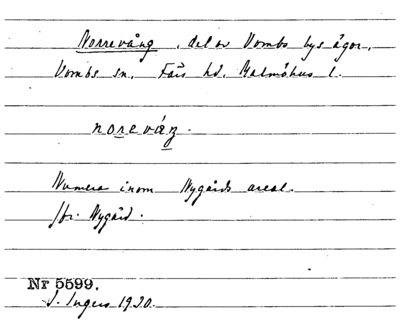 Norrevång, del av Vombs bys ägor,
Vombs sn. Färs hd. Malmöhus l.
noreváŋ.
Numera inom Nygårds areal.
Jfr. Nygård.
Nr 5599.
I. Ingers 1920.